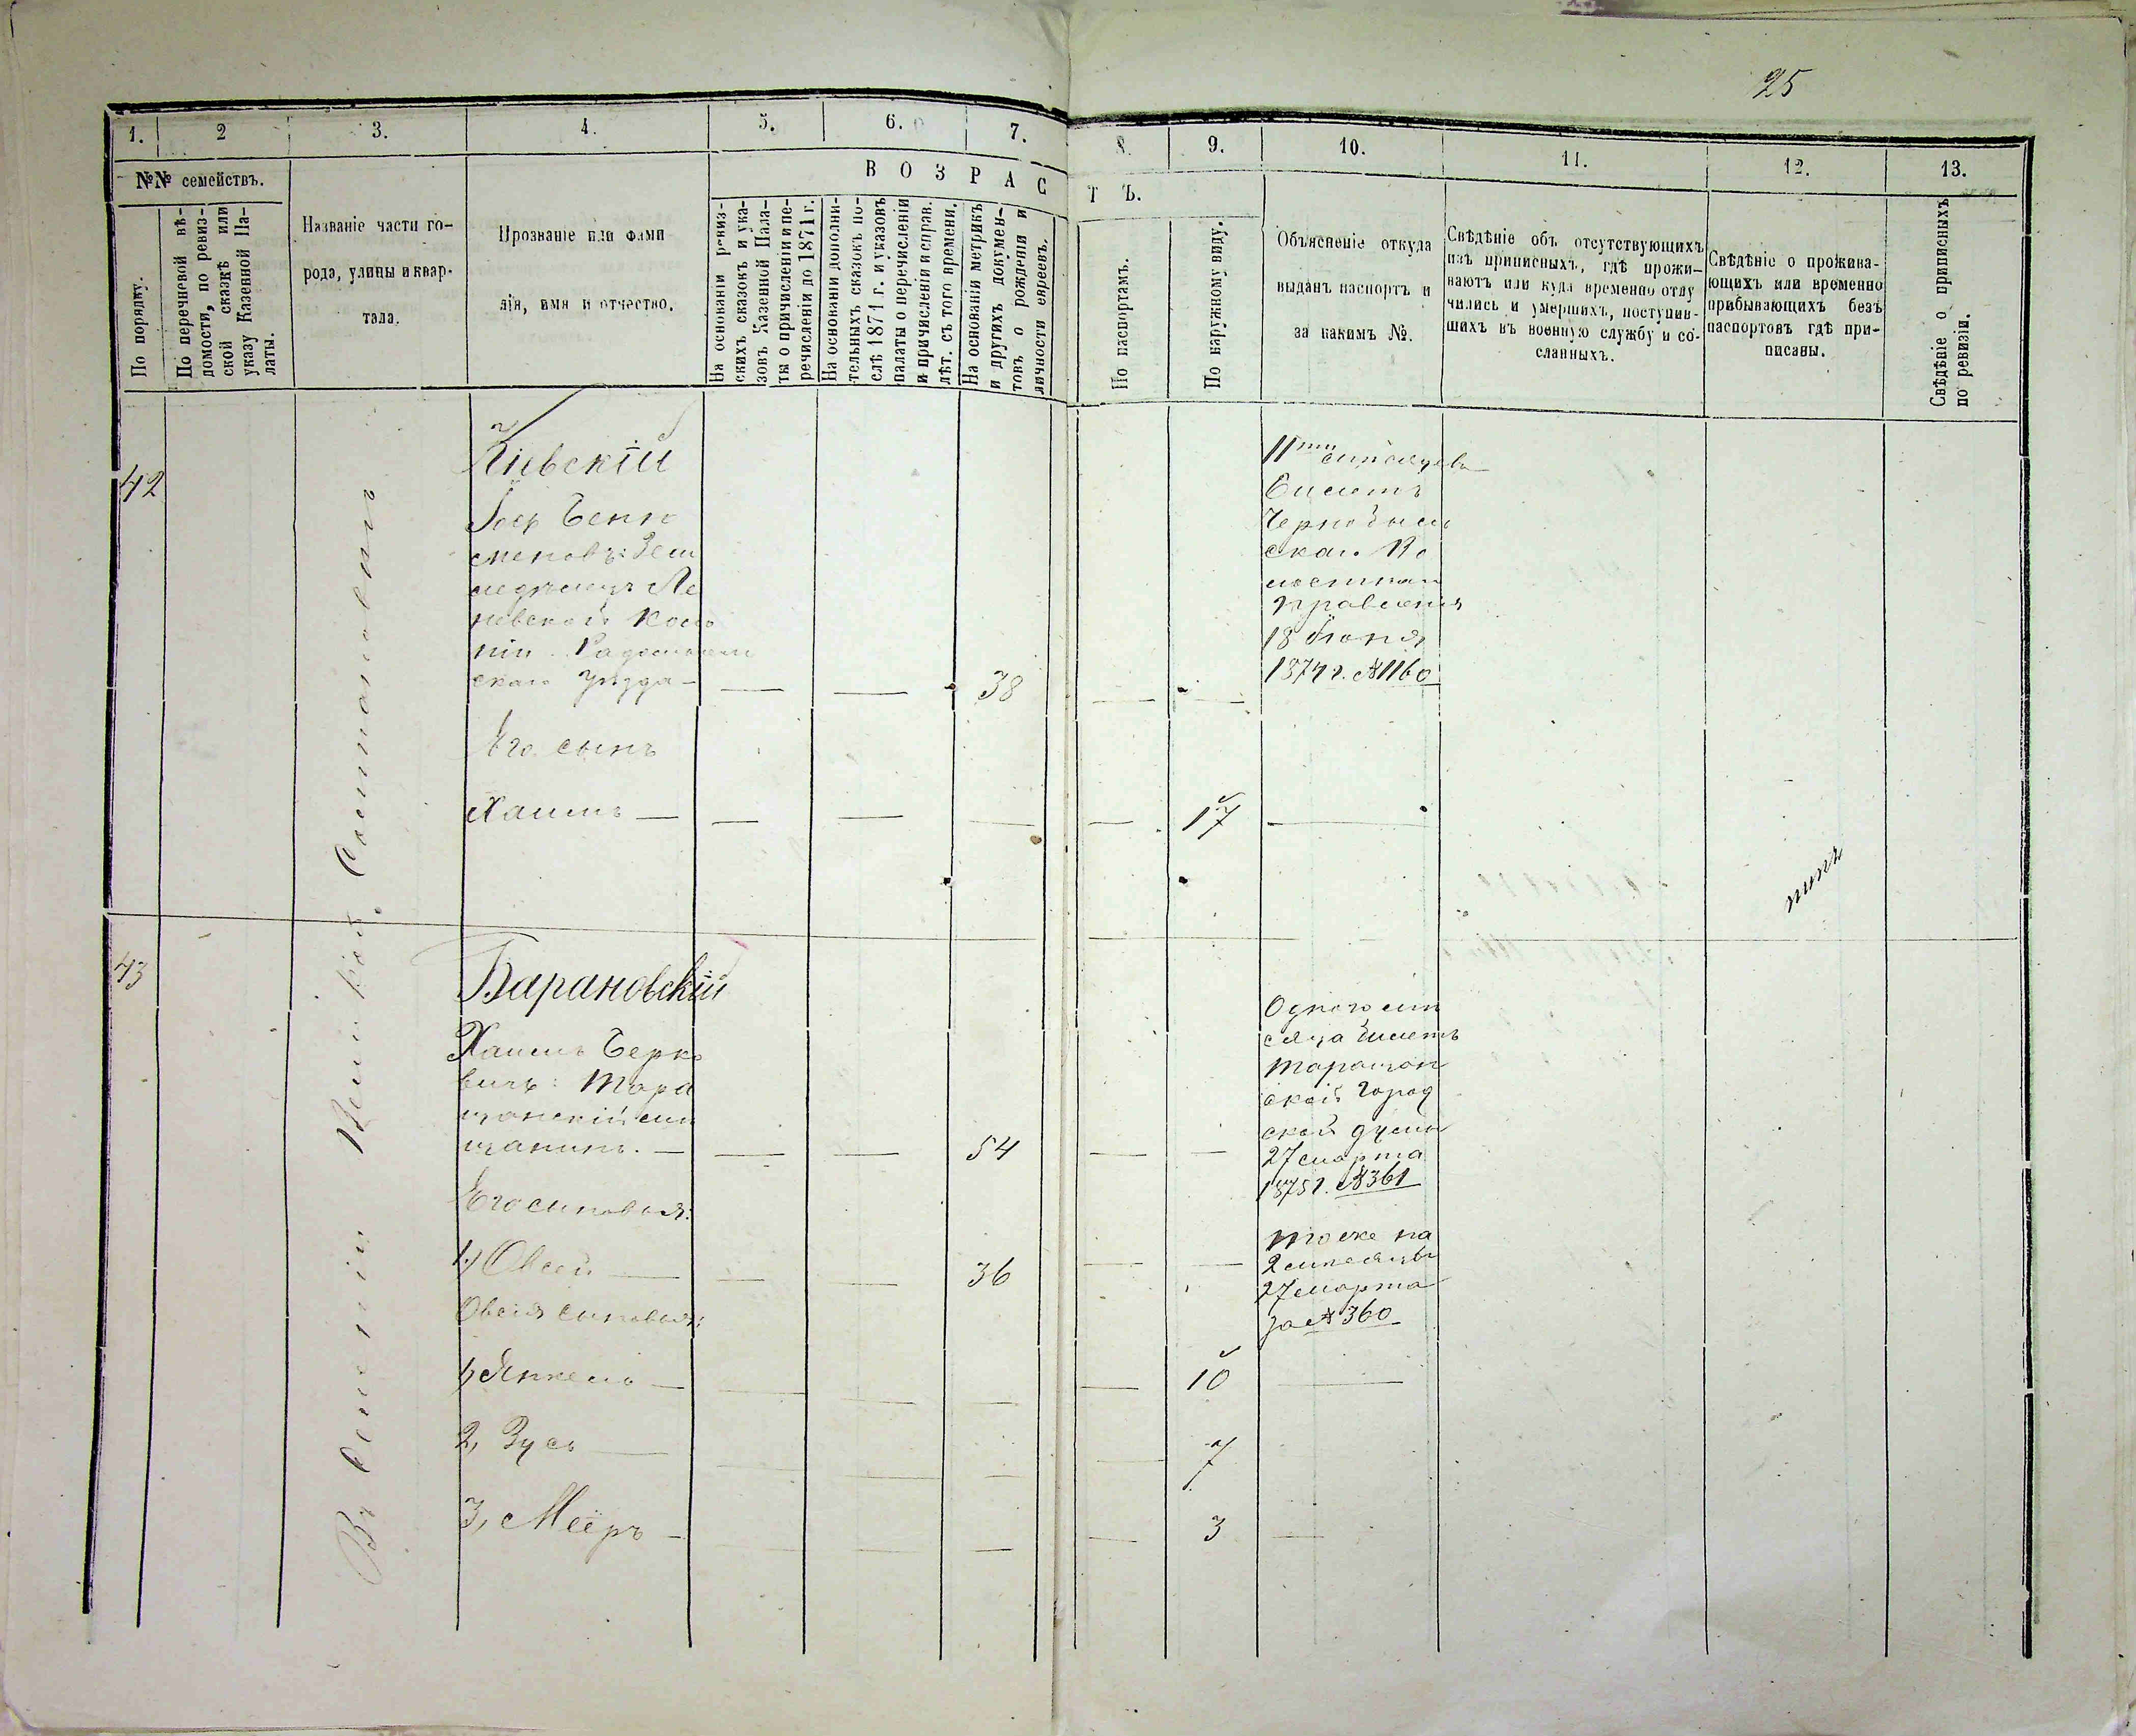 25
1.
2
3.
4.
5.
6.
7.
8.
9.
10.
11.
12.
13.
№№ семействъ.
По порядку.
По перечневой вѣ-
домости, по ревиз-
ской сказкѣ или
указу Казенной Па-
латы.
Названіе части го-
рода, улицы и квар-
тала.
Прозваніе или фами
лія, имя и отчество.
ВОЗРАС
ТЪ.
На основаніи ревиз-
скихъ сказокъ и ука-
зовъ Казенной Пала-
ты о причисленіи и пе-
речисленіи до 1871 г.
На основаніи дополни-
тельныхъ сказокъ по-
слѣ 1871 г. и указовъ
палаты о перечисленіи
и причисленіи и справ.
лѣт. съ того времени.
На основаніи метрикъ
и другихъ докумен-
товъ о рожденіи и
личности евреевъ.
По паспортамъ.
По наружному виду.
Объясненіе откуда
выданъ паспортъ и
за какимъ №.
Свѣдѣніе объ отсутствующихъ
изъ приписныхъ, гдѣ прожи-
ваютъ или куда временно отлу
чились и умершихъ, поступив-
шихъ въ военную службу и со-
сланныхъ.
Свѣдѣніе о прожива-
ющихъ или временно
прибывающихъ безъ
паспортовъ гдѣ при-
писаны.
Свѣдѣніе о приписныхъ
по ревизіи.
Въ селеніи
42
Кіевскій
Іось Бенъ
земле
дѣлецъ
Коло
ніи Радомысль
скаго уѣзда —
38
Его сынъ
Хаимъ —
17
11ти мѣсячный
билетъ
Чернобыль
скаго Во
лостнаго
правленія
18 Іюня
1874 г. №1160
43
Барановскій
Хаимъ Берко
вичъ: Тара
щанскій мѣ
щанинъ. —
54
Его сыновья:
1, Овсей —
36
Овсія сыновья:
1, Янкель —
10
2, Зусь —
7
3, Мееръ —
3
Одного мѣ
сяца билетъ
Таращан
ской Город
ской думы
27 марта
1875 г. №361
тоже на
2 мѣсяцы
27 марта
за №360